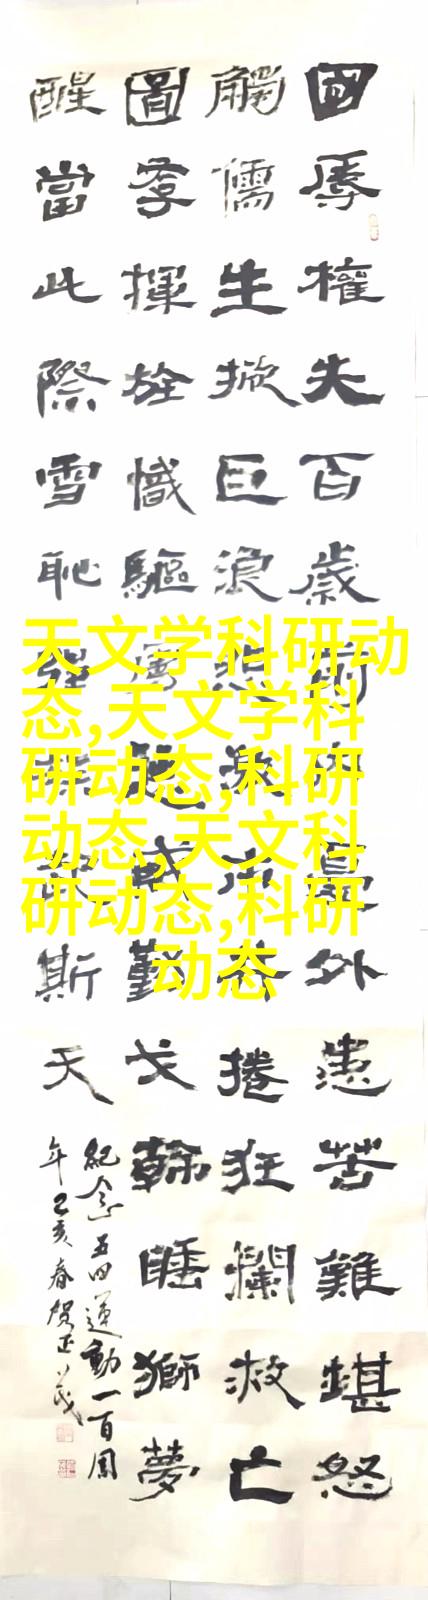 國辱權失百歲前內外患苦難堪怒
觸儒生掀巨浪悲激捲狂瀾救亡
圖存揮旌幟驅戈睡獅夢
醒當此際雪恥強斯天
紀念五四運動一百周
年己亥春賀正
天文学科研动
态,天文学科
研动态,科研
动态,天文科
研动态,科研
动态